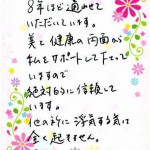 8年ほど通わせて
いただいています。
美と健康の両面から
私をサポートして下さって
いますので
絶対的に信頼して
います。
他の所に浮気する気は
全く起きません。